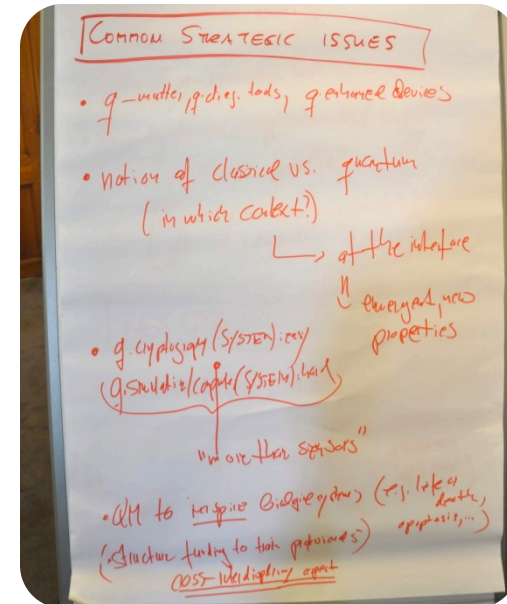 COMMON STRATEGIC ISSUES
• q-matter, q-diag. tools, q. enhanced devices
• notion of classical vs. quantum
(in which context?)
at the interface
emergent, new
properties
• q. cryptography (SYSTEM): easy
(q. simulation/compute (SYSTEM): hard
"more than sensors"
• QM to inspire biological systems (e.g.
death,
apoptosis,...)
(structure funding to train
cross-interdisciplinary aspect